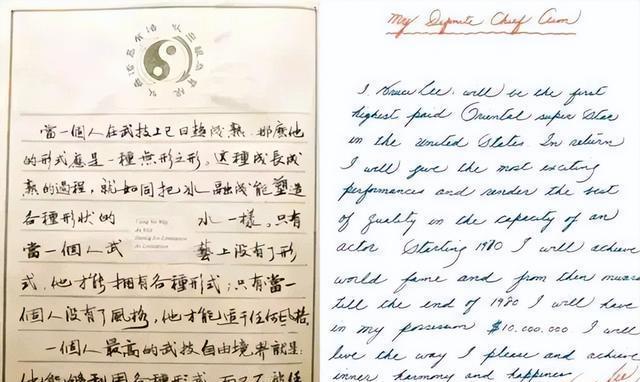 當一個人在武技上已日趨成熟，那麼他
的形式應是一種無形之形。這種成長成
熟的過程，就如同把冰融成能塑造
各種形狀的 水一樣。只有
當一個人武 藝上没有了形
式，他才能擁有各種形式；只有當一
個人没有了風格，他才能適于任何風格
一個人最高的武技自由境界就是：
Using No Way
As Way
Having No Limitation
As Limitation
My Definite Chief Aim
I, Bruce Lee, will be the first
highest paid Oriental super Star
in the United States. In return
I will give the most exciting
performances and render the best
of quality in the capacity of an
actor. Starting I will achieve
world fame and from then onward
till the end of 1980 I will have
in my possession $10,000,000. I will
live the way I please and achieve
inner harmony and happiness. Lee